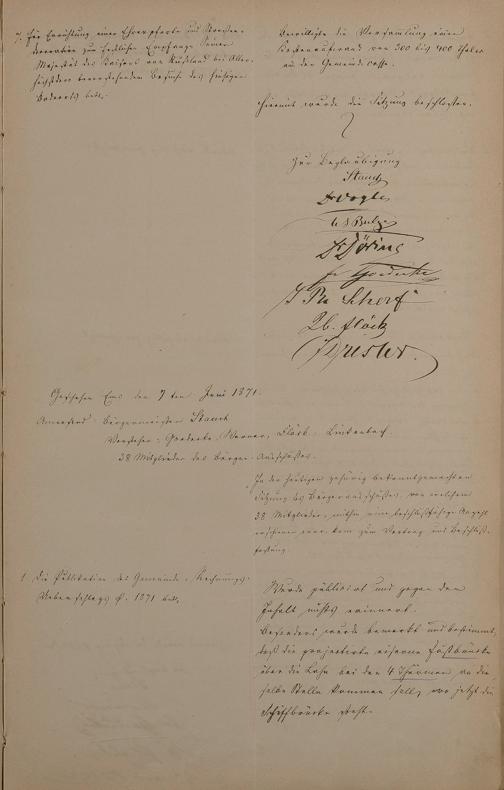 7. Für Errichtung einer Ehrenpforte und
decoration zum festlichen Empfange Seiner
Majestät des Kaisers von Rußland bei Aller-
höchstdem bevorstehenden Besuche des hiesigen
Badeorts betr.
Bewilligte die Versammlung einen
Kostenaufwand von 300 bis 400 Thaler
aus der Gemeindecasse.
Hiermit wurde die Sitzung beschlossen.
Zur Beglaubigung
Stauch
Dr Vogler
Dr Döring
Goedecke
Scherf
Flöck
Geschehen Ems den 7ten Juni 1871.
Anwesend: Bürgermeister Stauch
Vorsteher: Goedecke, Werner, Flöck, Linkenbach
38 Mitglieder des Bürger-Ausschusses.
In der heutigen gehörig bekanntgemachten
Sitzung des Bürgerausschusses, von welchem
38 Mitglieder, mithin eine beschlußfähige Anzahl
erschienen war, kam zum Vortrag und Beschluß-
fassung.
1. Die Publikation des Gemeinde-Rechnungs-
Ueberschlags p. 1871 betr.
Wurde publicirt und gegen den
Inhalt nichts erinnert.
Besonders wurde bemerkt und bestimmt,
daß die projectirte eiserne Fußbrücke
über die Lahn bei den 4 Thürmen an die-
selbe Stelle kommen soll, wo jetzt die
Schiffbrücke steht.